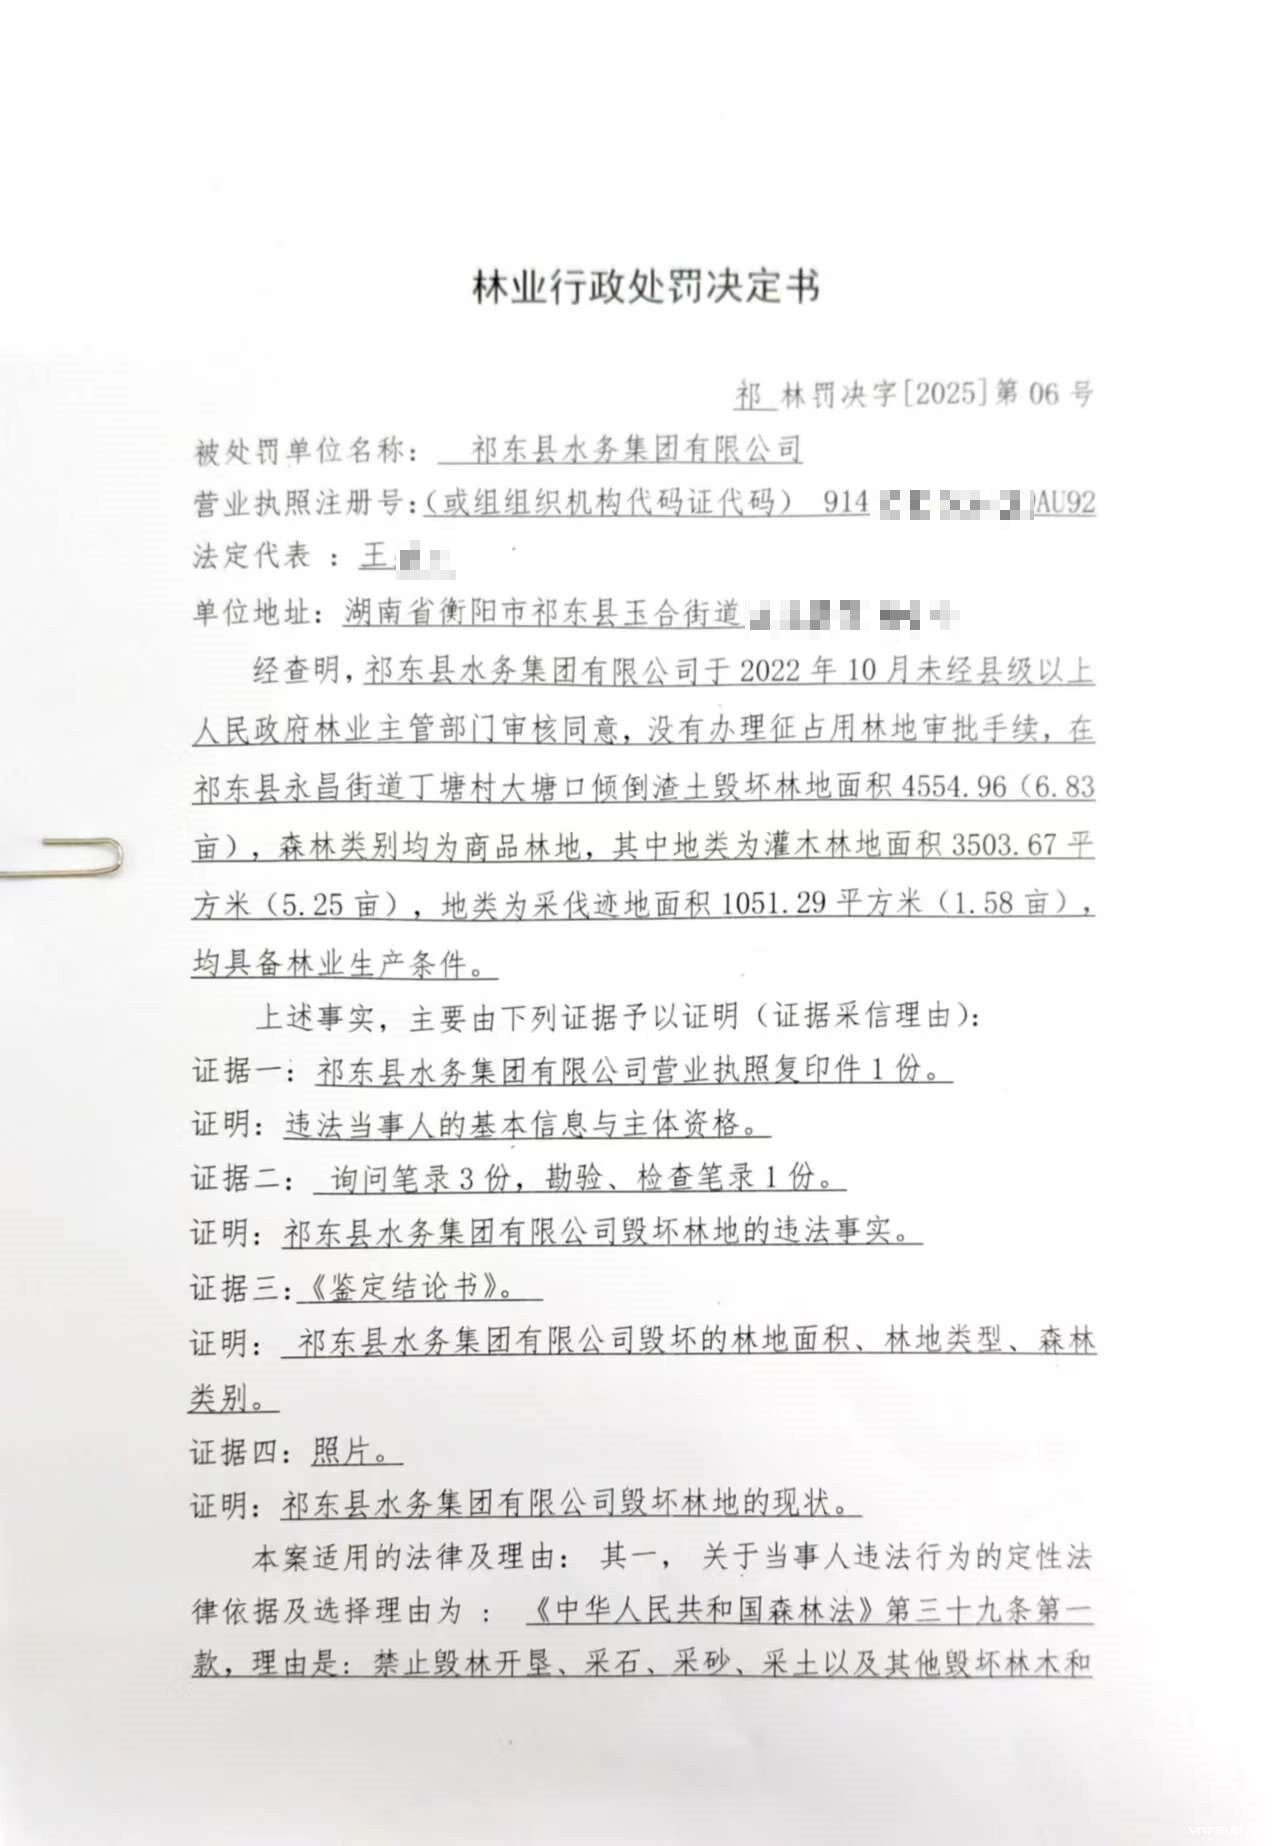 林业行政处罚决定书
祁 林罚决字[2025]第 06 号
被处罚单位名称： 祁东县水务集团有限公司
营业执照注册号：(或组组织机构代码证代码） 914 AU92
法定代表 ：王
单位地址：湖南省衡阳市祁东县玉合街道
经查明，祁东县水务集团有限公司于 2022 年 10 月未经县级以上
人民政府林业主管部门审核同意，没有办理征占用林地审批手续，在
祁东县永昌街道丁塘村大塘口倾倒渣土毁坏林地面积 4554.96（6.83
亩），森林类别均为商品林地，其中地类为灌木林地面积 3503.67 平
方米（5.25 亩），地类为采伐迹地面积 1051.29 平方米（1.58 亩），
均具备林业生产条件。
上述事实，主要由下列证据予以证明（证据采信理由）：
证据一：祁东县水务集团有限公司营业执照复印件 1 份。
证明：违法当事人的基本信息与主体资格。
证据二： 询问笔录 3 份，勘验、检查笔录 1 份。
证明：祁东县水务集团有限公司毁坏林地的违法事实。
证据三：《鉴定结论书》。
证明： 祁东县水务集团有限公司毁坏的林地面积、林地类型、森林
类别。
证据四：照片。
证明：祁东县水务集团有限公司毁坏林地的现状。
本案适用的法律及理由： 其一， 关于当事人违法行为的定性法
律依据及选择理由为 ： 《中华人民共和国森林法》第三十九条第一
款，理由是：禁止毁林开垦、采石、采砂、采土以及其他毁坏林木和